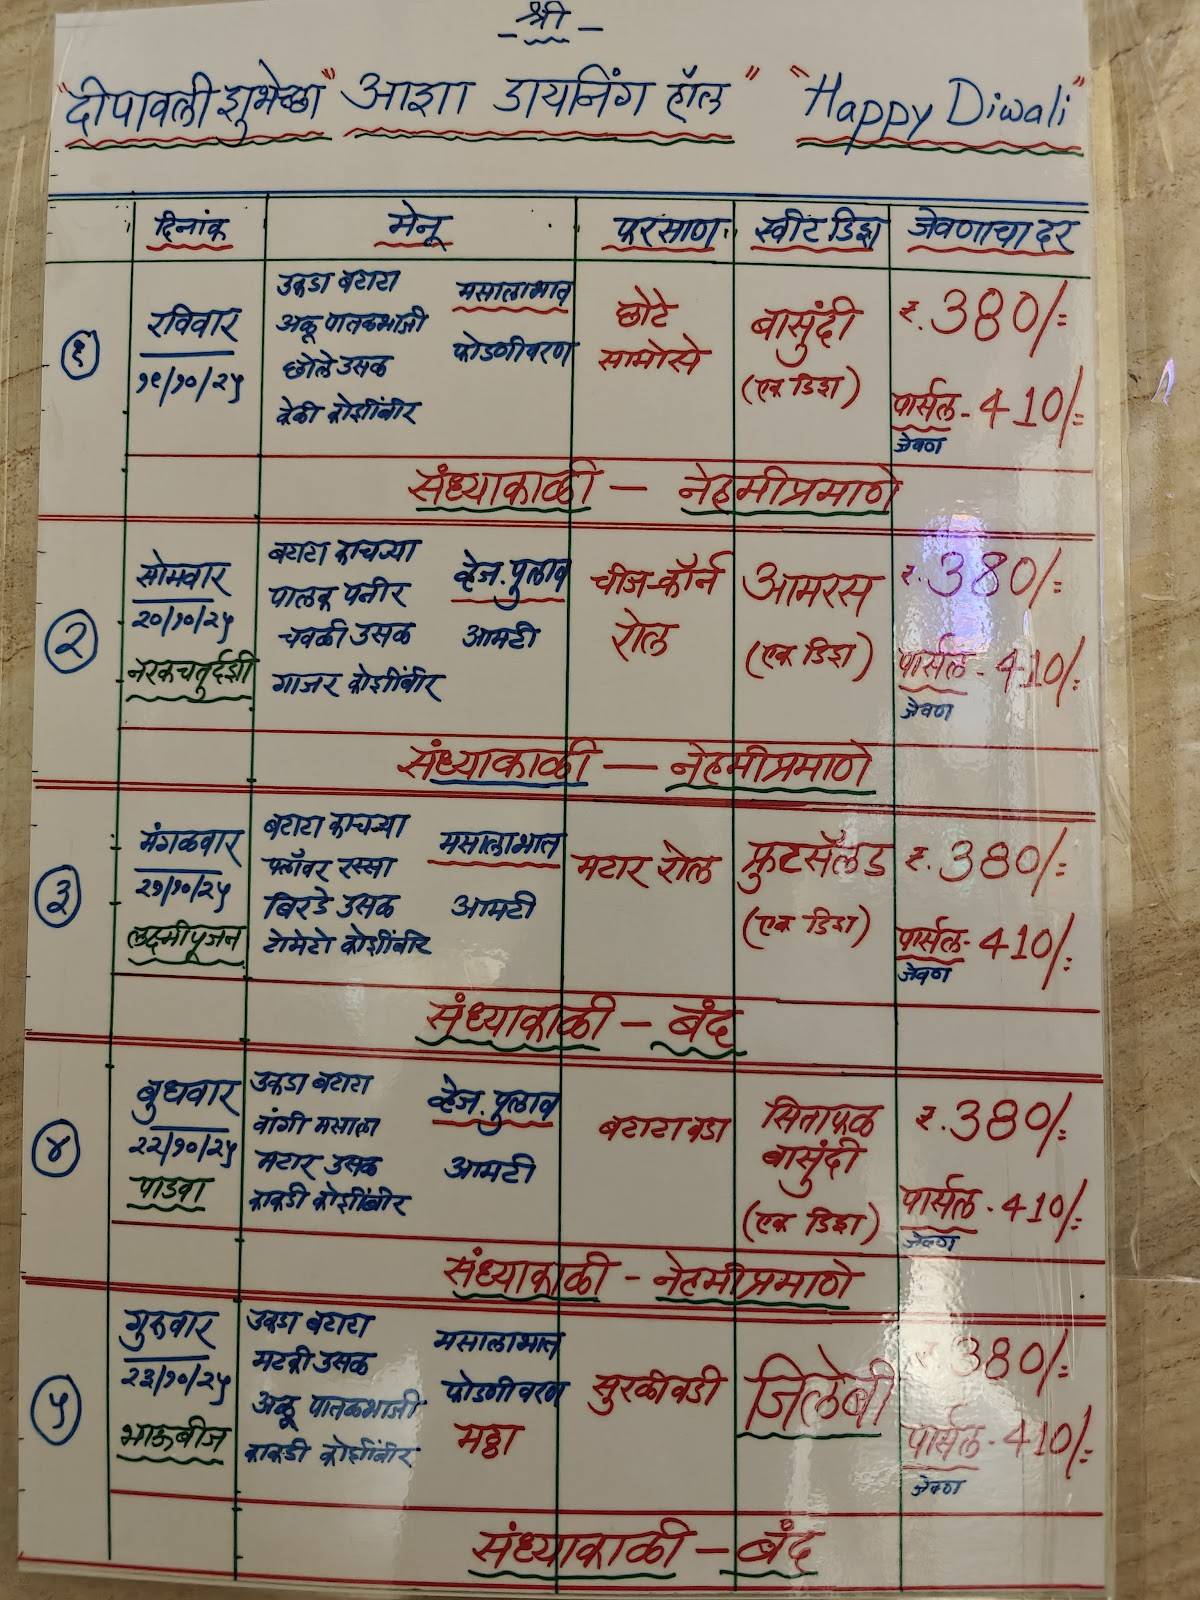 श्री
"दीपावली शुभेच्छा" आशा डायनिंग हॉल" "Happy Diwali"
दिनांक मेनू फरसाण स्वीट डिश जेवणाचा दर
१ रविवार १९/१०/२५
उकडा बटाटा मसालाभात
अळू पातळभाजी फोडणीवरण
छोले उसळ
केळी कोशींबीर
छोटे सामोसे
बासुंदी
(एक डिश)
रु. 380/=
पार्सल - 410/=
जेवण
संध्याकाळी — नेहमीप्रमाणे
२ सोमवार २०/१०/२५ नरकचतुर्दशी
बटाटा काचऱ्या व्हेज. पुलाव
पालक पनीर
चवळी उसळ आमटी
गाजर कोशींबीर
चीज-कॉर्न रोल
आमरस
(एक डिश)
रु. 380/=
पार्सल - 410/=
जेवण
संध्याकाळी — नेहमीप्रमाणे
३ मंगळवार २१/१०/२५ लक्ष्मीपूजन
बटाटा काचऱ्या मसालाभात
फ्लॉवर रस्सा
बिरडे उसळ आमटी
टोमेटो कोशींबीर
मटार रोल
फ्रुटसॅलड
(एक डिश)
रु. 380/=
पार्सल - 410/=
जेवण
संध्याकाळी — बंद
४ बुधवार २२/१०/२५ पाडवा
उकडा बटाटा व्हेज. पुलाव
वांगी मसाला
मटार उसळ आमटी
काकडी कोशींबीर
बटाटा वडा
सिताफळ बासुंदी
(एक डिश)
रु. 380/=
पार्सल - 410/=
जेवण
संध्याकाळी - नेहमीप्रमाणे
५ गुरुवार २३/१०/२५ भाऊबीज
उकडा बटाटा मसालाभात
मटकी उसळ
अळू पातळभाजी फोडणीवरण
काकडी कोशींबीर मठ्ठा
सुरळीवडी
जिलेबी
रु. 380/=
पार्सल - 410/=
जेवण
संध्याकाळी - बंद